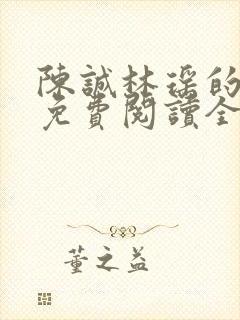 陳誠林瑤的
免費閱讀全
董之益